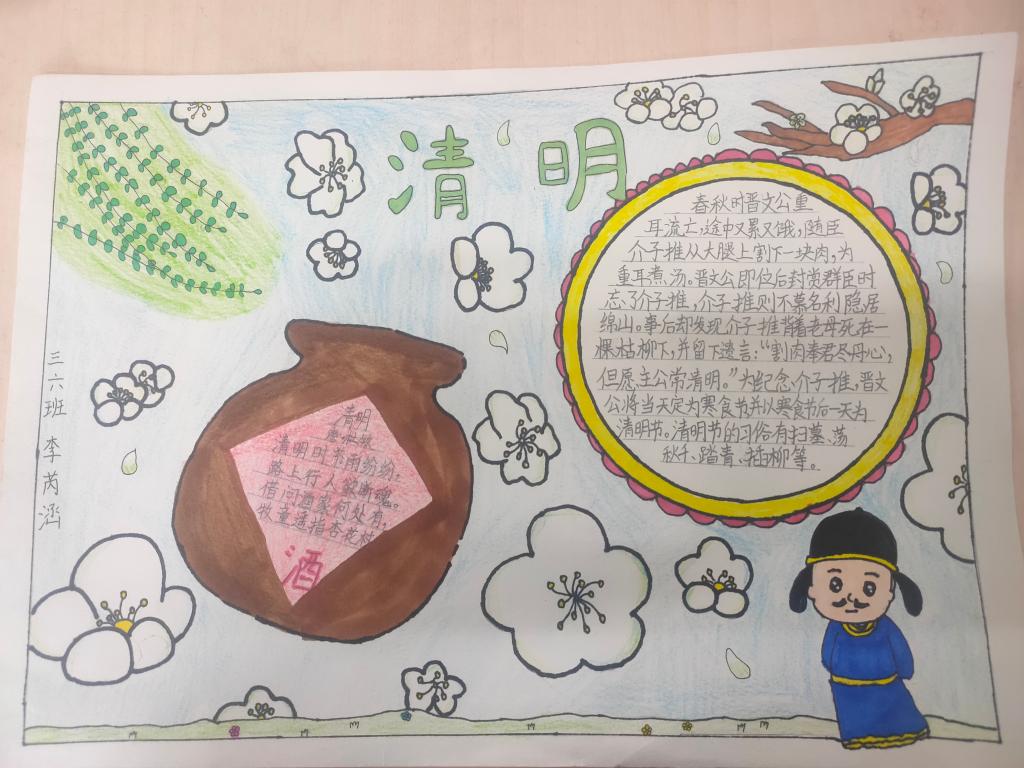 清明
春秋时晋文公重
耳流亡,途中又累又饿,随臣
介子推从大腿上割下一块肉,为
重耳煮汤。晋文公即位后封赏群臣时
忘了介子推,介子推则不慕名利隐居
绵山。事后却发现介子推背着老母死在一
棵枯柳下,并留下遗言:“割肉奉君尽丹心,
但愿主公常清明。”为纪念介子推,晋文
公将当天定为寒食节并以寒食节后一天为
清明节。清明节的习俗有扫墓、荡
秋千、踏青、插柳等。
三六班 李芮涵
清明
清明时节雨纷纷,
路上行人欲断魂。
借问酒家何处有,
牧童遥指杏花村
酒